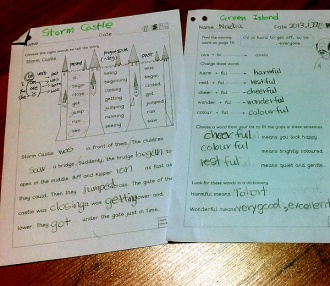 Storm Castle
Name
Date
Choose the right words to tell the story.
Storm Castle
present
past
being
was
beginning
began
closing
closed
getting
got
jumping
jumped
running
ran
seeing
saw
Storm Castle was in front of them. The children
saw a bridge. Suddenly, the bridge began to
open in the middle. Biff and Kipper ran as fast as
they could. Then they jumped across. The gate of the
castle was closing. It was getting lower and
lower. They got under the gate just in time.
Green Island
Name Nadia
Date 2013.1.
Find the missing
word on page
It is hard to get off, so be
everyone.
Change these words.
harm + ful harmful
rest + ful restful
cheer + ful cheerful
wonder + ful wonderful
colour + ful colourful
Choose a word from your list to fill the gaps in these sentences.
cheerful means you look happy.
colourful means brightly coloured.
restful means quiet and gentle.
Look for these words in a dictionary.
Harmful means
Wonderful means very good, excellent